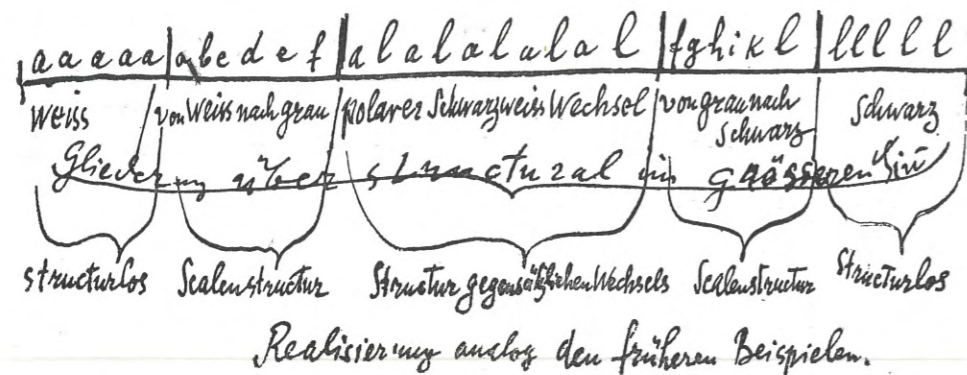 a a a a a | a b c d e f | a l a l a l a l a l | f g h i k l | l l l l l
weiss von Weiss nach grau polarer Schwarzweiss Wechsel von grau nach schwarz schwarz
Gliederung über structural im grösseren Sinn
structurlos Scalenstructur Structur gegensätzlichen Wechsels Scalenstructur Structurlos
Realisierung analog den früheren Beispielen.